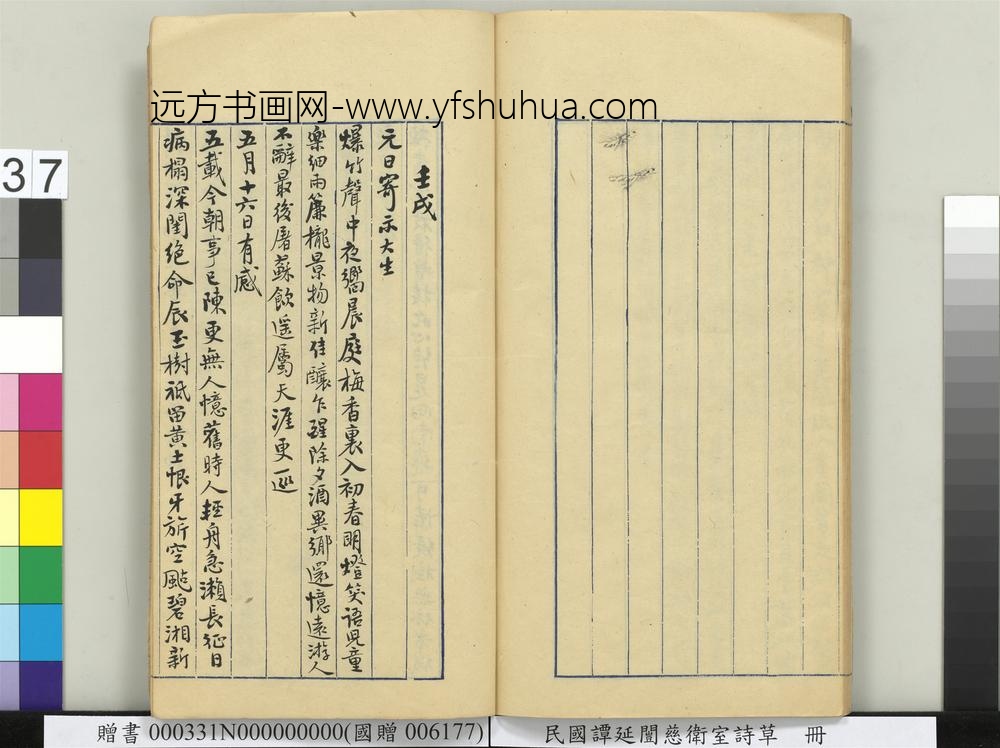 远方书画网-www.yfshuhua.com
37
壬戌
元日寄示大生
爆竹聲中夜嚮晨庭梅香裏入初春明燈笑語兒童
樂細雨簾櫳景物新佳釀乍醒除夕酒異鄉還憶遠游人
不辭最後屠蘇飲遥屬天涯更一巡
五月十六日有感
五載今朝事已陳更無人憶舊時人輕舟急瀨長征日
病榻深閨絕命辰玉樹祇留黃土恨牙旂空颭碧湘新
贈書 000331N000000000(國贈 006177)
民國譚延闓慈衛室詩草 冊